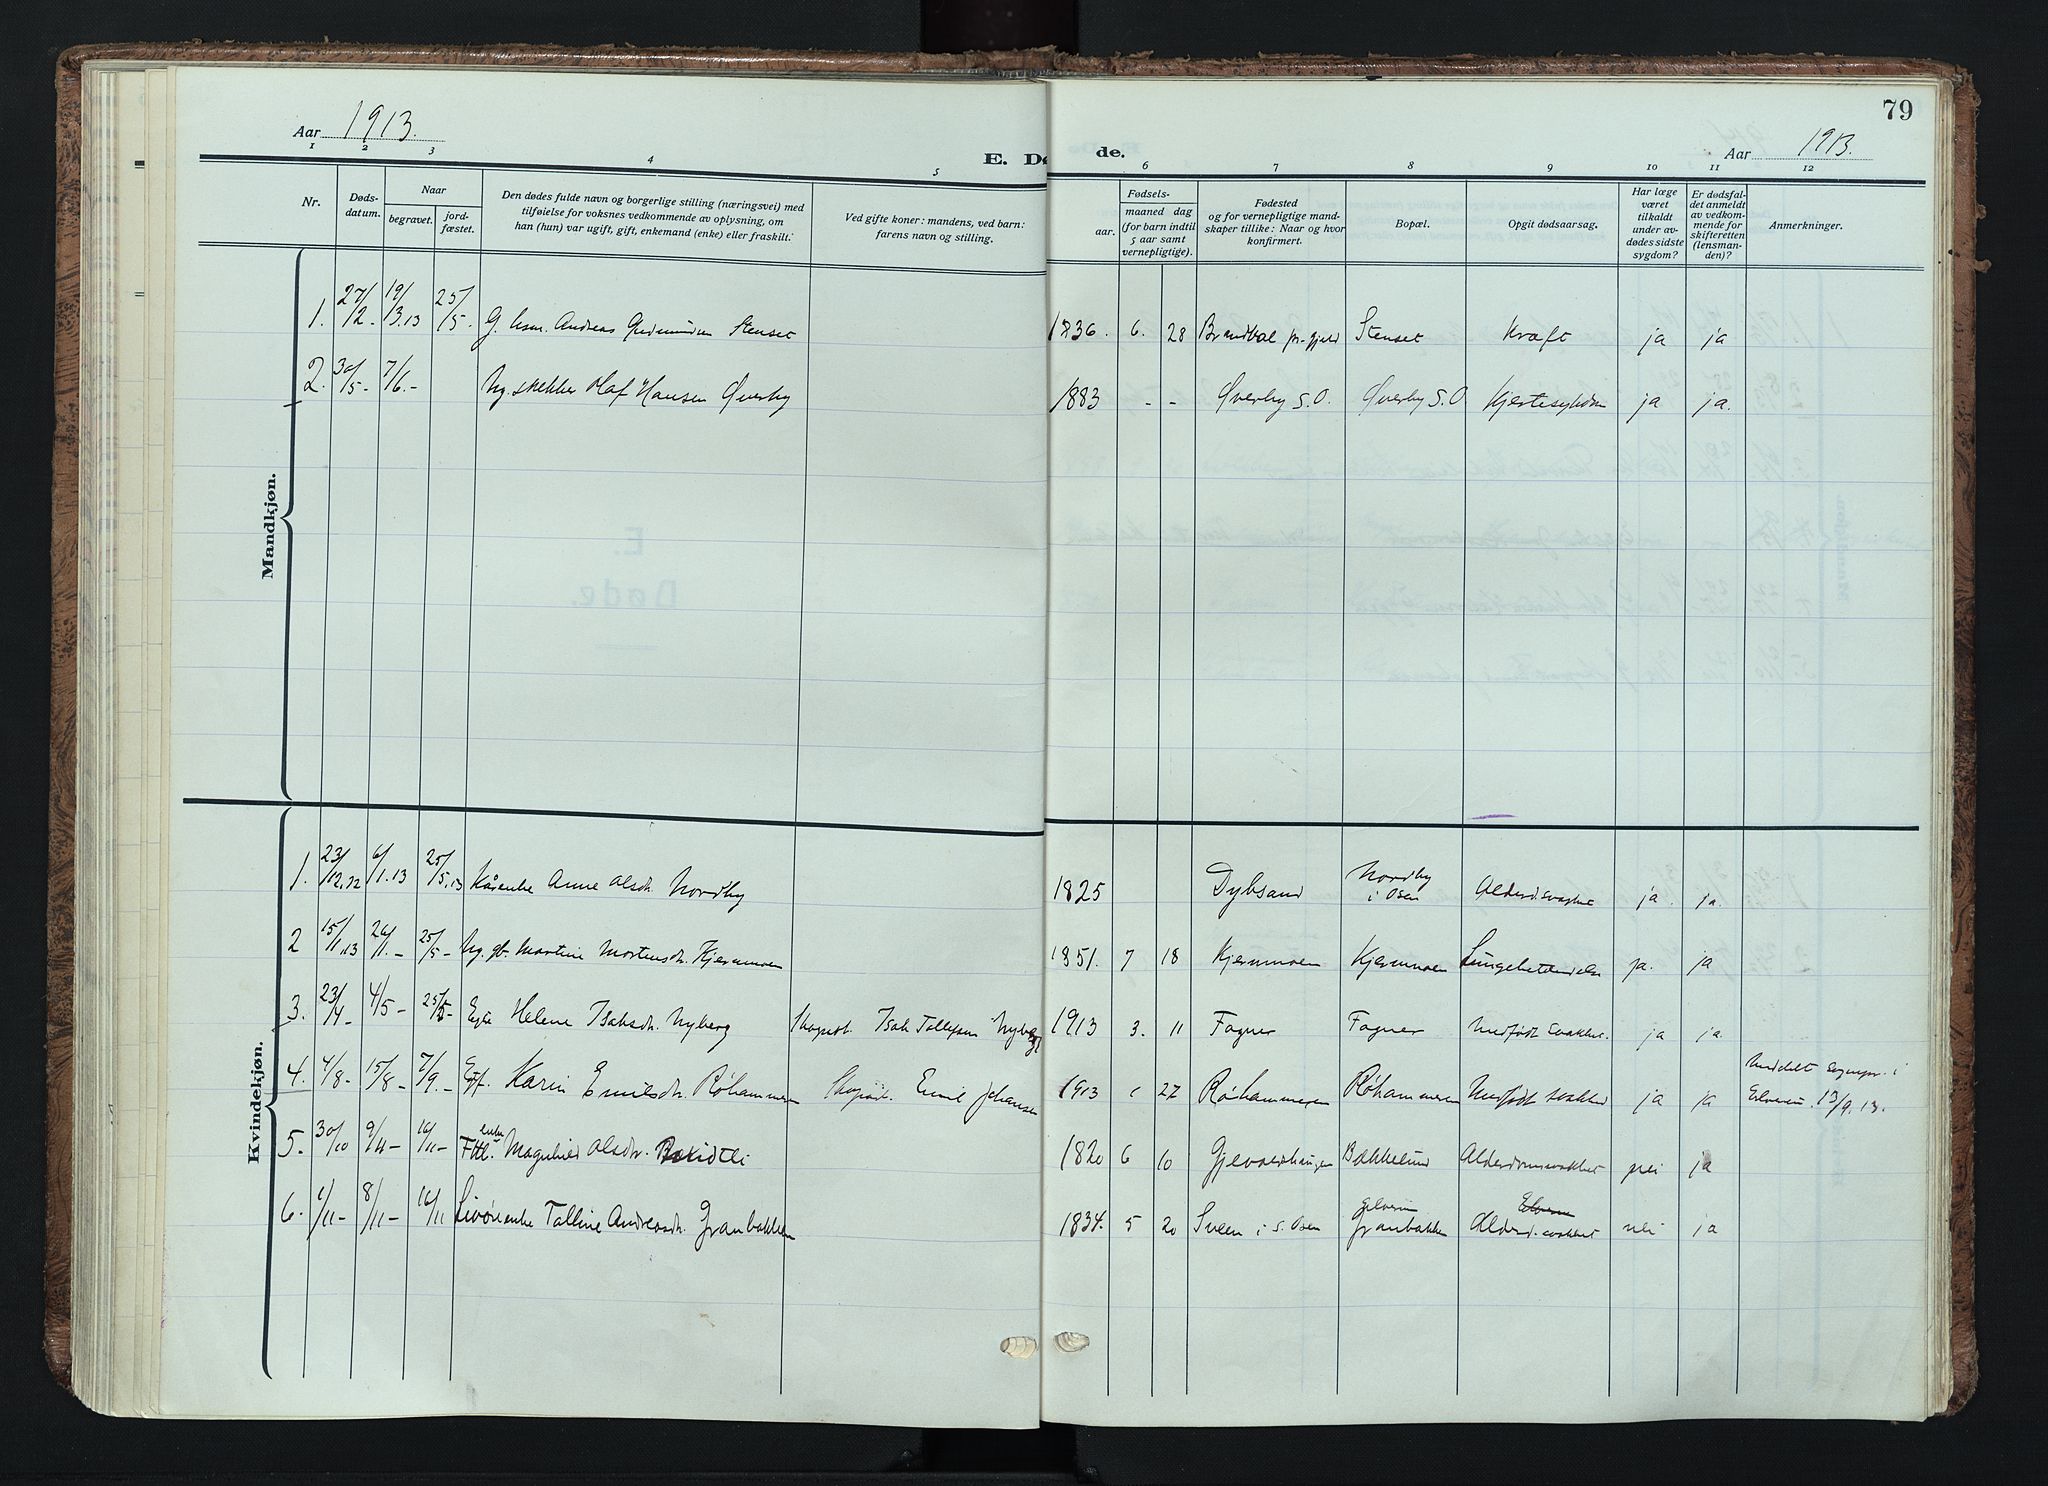 79
Aar 1913.
E. Døde.
Aar 1913.
1 2 3 4 5 6 7 8 9 10 11 12
Nr.
Døds-
datum.
Naar
begravet.
jord-
fæstet.
Den dødes fulde navn og borgerlige stilling (næringsvei) med
tilføielse for voksnes vedkommende av oplysning, om
han (hun) var ugift, gift, enkemand (enke) eller fraskilt.
Ved gifte koner: mandens, ved barn:
farens navn og stilling.
Fødsels-
aar.
maaned dag
(for barn indtil
5 aar samt
vernepligtige).
Fødested
og for vernepligtige mand-
skaper tillike: Naar og hvor
konfirmert.
Bopæl.
Opgit dødsaarsag.
Har læge
været
tilkaldt
under av-
dødes sidste
sygdom?
Er dødsfal-
det anmeldt
av vedkom-
mende for
skifteretten
(lensman-
den)?
Anmerkninger.
Mandkjøn.
1. 27/2- 19/3.13 25/5. Andreas Stenset 1836. 6. 28 Brandval pr.gjeld Stenset Kræft ja ja
2. 30/5- 7/6.- Olaf Hansen Øverby 1883 - - Øverby S.O. Øverby S.O Hjertesykdom ja ja.
Kvindekjøn.
1. 23/12.12 6/1.13 25/5.13 Kårenke Anne Olsdr. Nordby 1825 Dybsand Nordby i Osen ja. ja.
2 15/1.13 26/1.- 25/5- Martine Mortensdr. Kjernmoen 1851. 7 18 Kjernmoen Kjernmoen Lungebetændelse ja. ja
3. 23/4- 4/5- 25/5- Helene Isaksdr. Nyberg Isak Tollefsen Nyberg 1913 3. 11 Fagner Fagner Medfødt svakhet. ja ja.
4. 4/8- 15/8- 7/9.- Karin Emilsdr. Røhammeren Emil Johansen 1913 27 Røhammeren Røhammeren Medfødt svakhet ja ja Meddelt i
Elverum. 13/9.13.
5. 30/10 9/11- 16/11- enke Olsdr. 1820 6 10 Bækkelund Alderdomssvakhet nei ja
6. 1/11- 8/11- 16/11 Tolline Andreasdr. Granbakken 1834. 5 20 Sveen i S. Osen Granbakken Elverum Alderd. svakhet nei ja